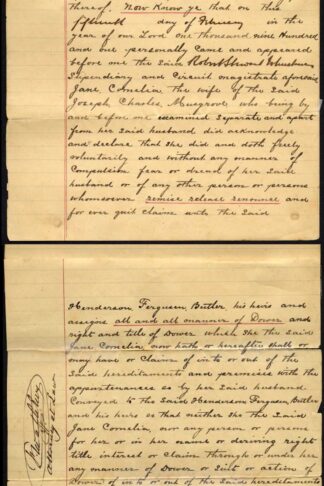 thereof. Now Know ye that on this
fifteenth day of February in the
year of our Lord one thousand nine Hundred
and one personally came and appeared
before me the Said Robert Stewart
Stipendiary and Circuit Magistrate aforesaid
Jane Cornelia the wife of the Said
Joseph Charles Musgrove who being by
and before me examined Separate and apart
from her Said husband did acknowledge
and declare that She did and doth freely
voluntarily and without any manner of
Compulsion fear or dread of her Said
husband or of any other person or persons
whomsoever remise release renounce and
for ever quit claim unto the Said
Henderson Ferguson Butler his heirs and
assigns all and all manner of Dower and
right and title of Dower which She the Said
Jane Cornelia now hath or hereafter shall or
may have or Claim of in to or out of the
Said hereditaments and premises with the
appurtenances as by her Said husband
Conveyed to the Said Henderson Ferguson Butler
and his heirs so that neither She the Said
Jane Cornelia, nor any person or persons
for her or in her name or deriving right
title interest or Claim through or under her
any manner of Dower or Suit or action of
Dower of in to or out of the Said hereditaments